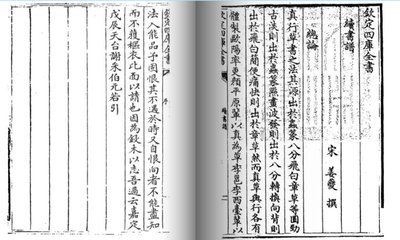 欽定四庫全書
續書譜
宋 姜夔 撰
總論
真行草書之法其源出於蟲篆八分飛白章草等圓勁
古淡則出於蟲篆點畫波發則出於八分轉換向背則
出於飛白簡便痛快則出於章草然而真草與行各有
體製歐陽率更顏平原輩以真為草李邕李西臺輩以
欽定四庫全書 續書譜
欽定四庫全書
法入能品予固恨其不遇於時又自恨向者不能盡知
而不獲摳衣北面以請也因為鋟木以志吾過云嘉定
戊辰天台謝采伯元若引